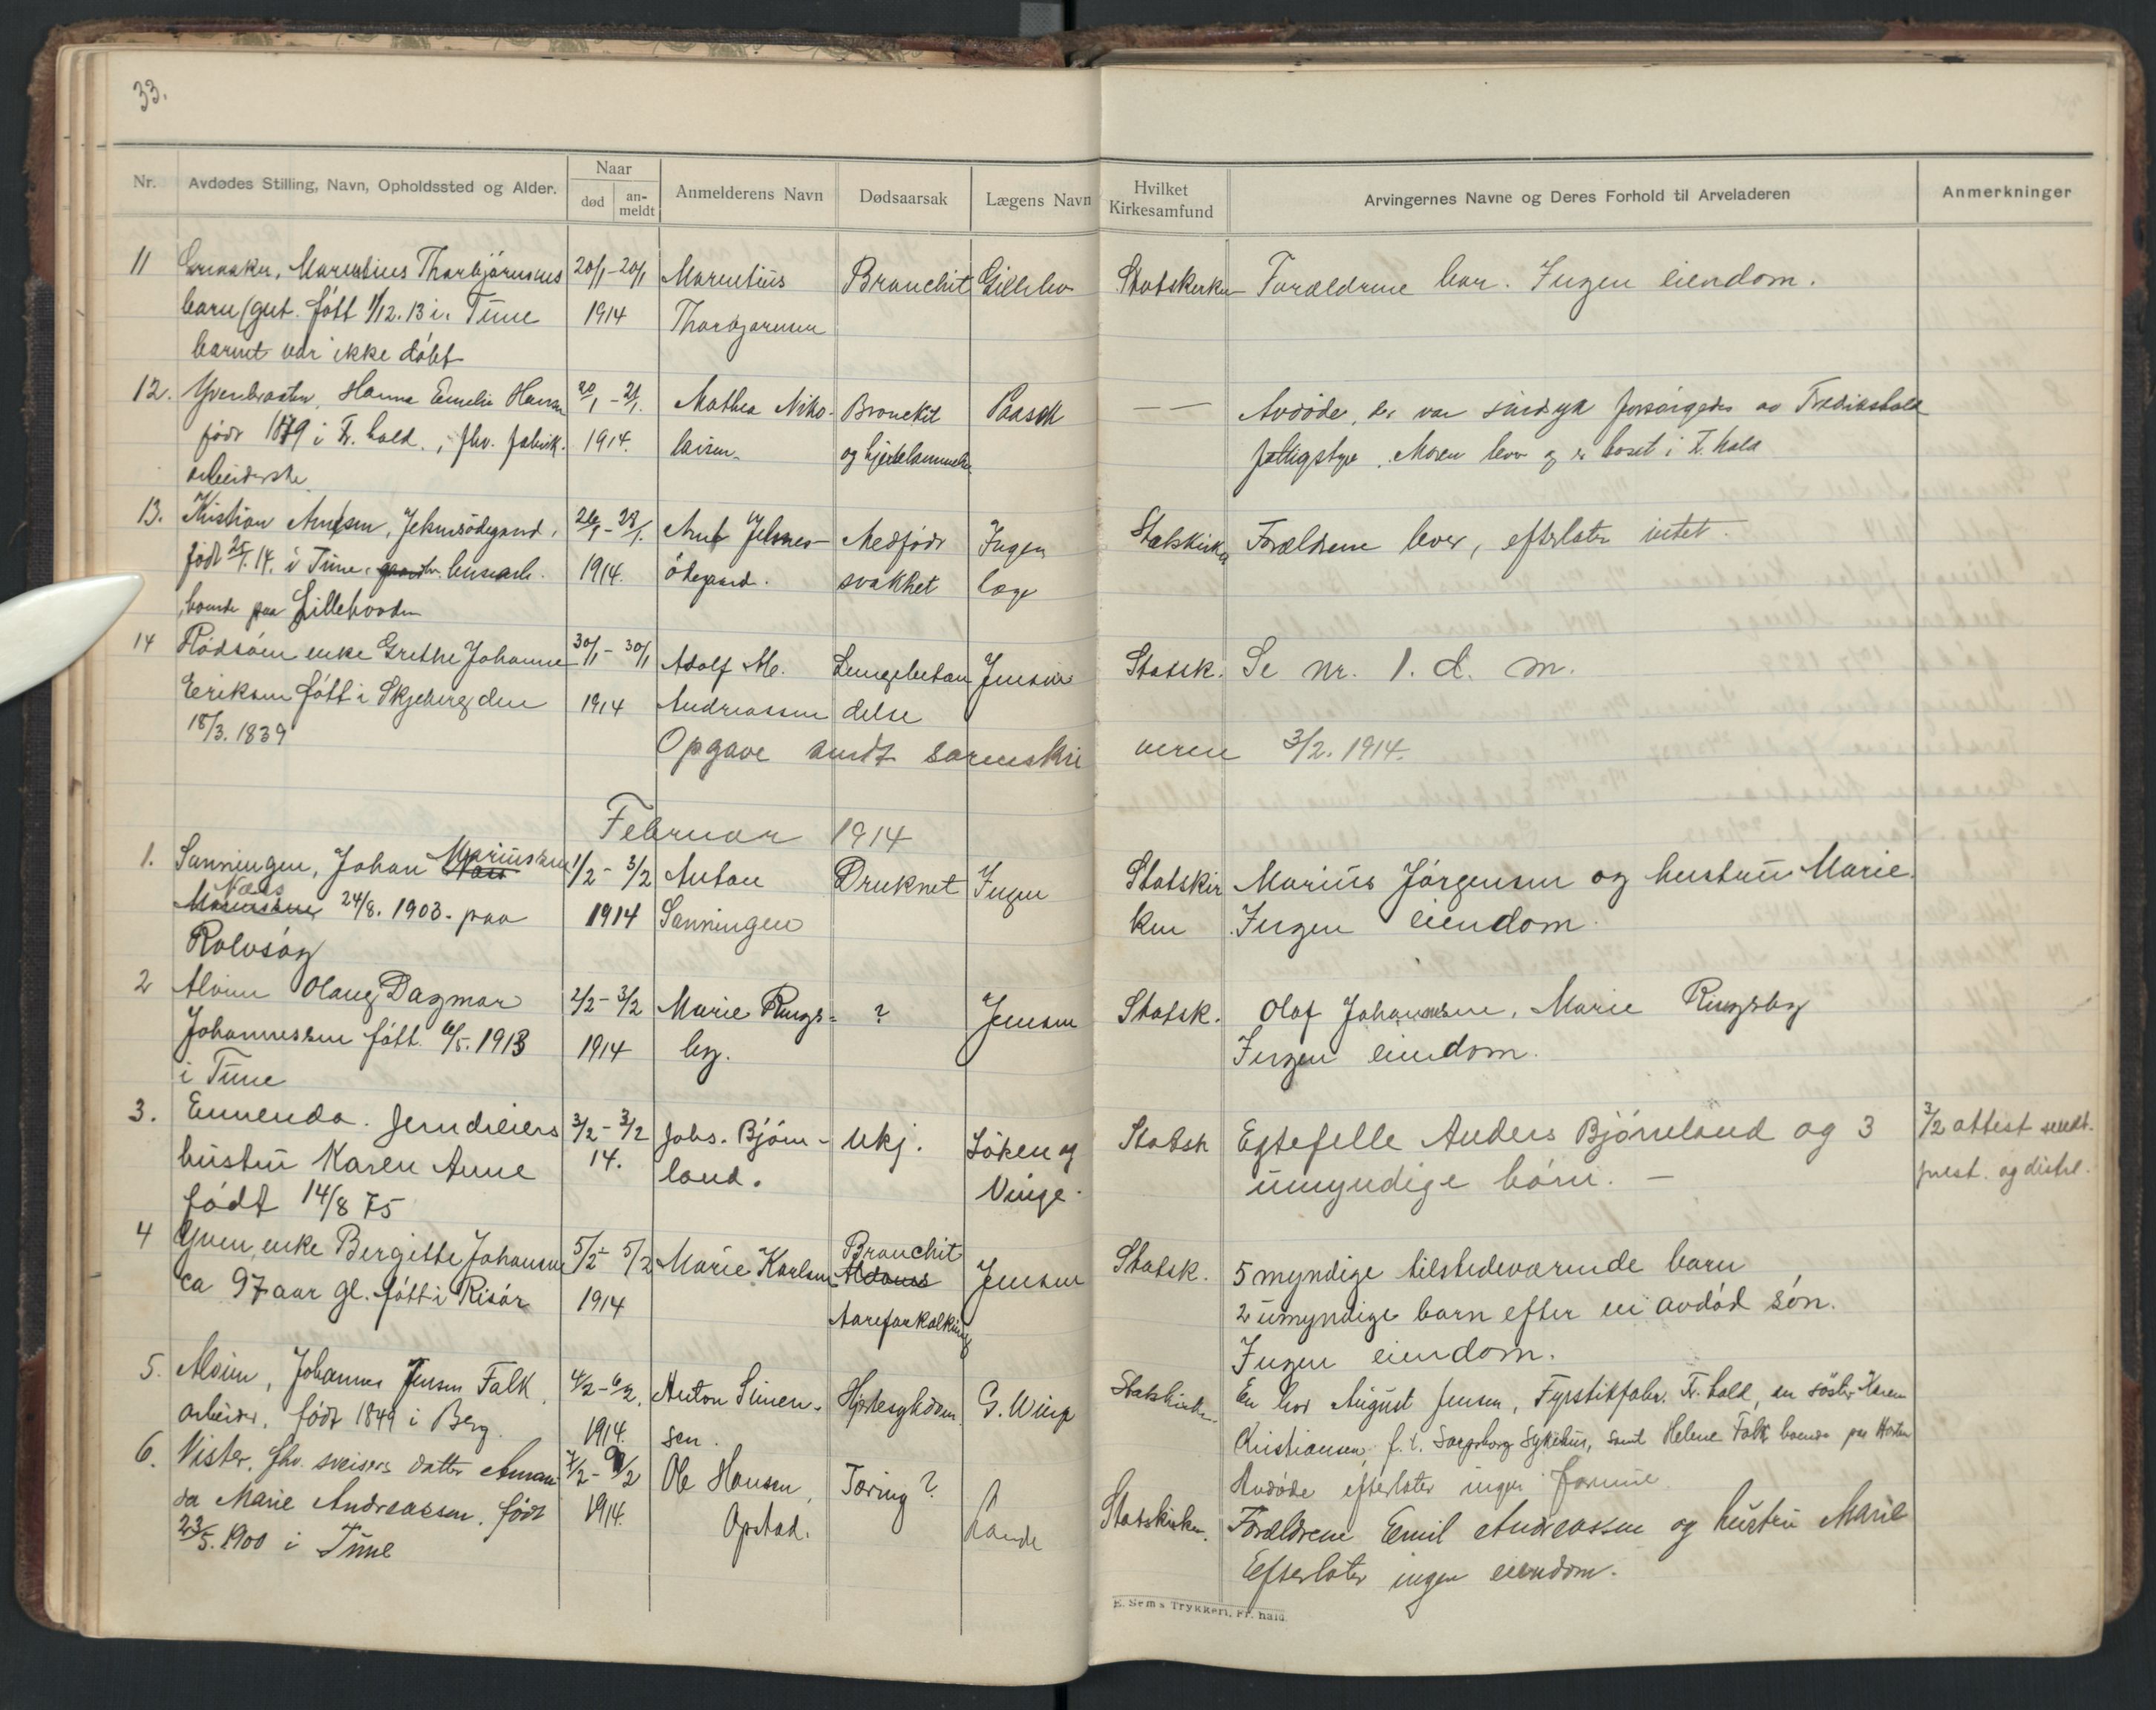 33.
Nr. Avdødes Stilling, Navn, Opholdssted og Alder. Naar død an-meldt Anmelderens Navn Dødsaarsak Lægens Navn Hvilket Kirkesamfund Arvingernes Navne og Deres Forhold til Arveladeren Anmerkninger
11 Marentius Thorbjørnsens 20/1 - 20/1 Marentius Bronchit Statskirken Forældrene lever. Ingen eiendom.
barn (gut. født 1/12. 13 i Tune 1914 Thorbjørnsen
barnet var ikke døbt
12. Yvenbraaten, Hanna Emelie Hansen 20/1 - 21/1. Mathea Niko- Bronchit Paasch — — Avdøde, der var sindsyk forsørgedes av Fredrikshald
født 1879 i Fr.hald., fhv. fabrik- 1914. laisen. og hjertelammelse fattigstyre. Moren lever og er bosat i Fr.hald
arbeiderske.
13. Kristian Arntsen, Jelsnesødegaard, 26/1 - 28/1. Arnt Jelsnes- Medfødt Ingen Statskirken Forældrene lever, efterlater intet.
født 25/1. 14. i Tune. husearb. 1914. ødegaard. svakhet læge
boende paa Lillehovden
14 Rødsøen enke Grethe Johanne 30/1 - 30/1 Adolf M. Lungebetæn Jensen Statsk. Se nr. 1. d. m.
Eriksen født i Skjeberg den 1914 Andreassen delse
18/3. 1839
Opgave sendt sorenskri veren 3/2. 1914.
Februar 1914
1. Sanningen, Johan Mariussen 1/2 - 3/2 Anton Druknet Ingen Statskir Marius Jørgensen og hustru Marie.
Næs 24/8. 1903. paa 1914 Sanningen ken Ingen eiendom.
Rolvsøy
2 Alvim Olaug Dagmar 2/2 - 3/2 Marie Rings- ? Jensen Statsk. Olaf Johannessen, Marie Ringsby
Johannessen født 6/5. 1913 1914 by. Ingen eiendom.
i Tune
3. Ennenda. Jerndreiers 3/2 - 3/2 Johs. Bjørn- Ukj. Løken og Statsk Egtefelle Anders Bjørneland og 3 3/2 attest sendt.
hustru Karen Anne 14. land. Vinge. umyndige børn. — prest. og distrl.
født 14/8 75
4 Yven, enke Bergitte Johansen 5/2 - 5/2 Marie Karlsen Bronchit Jensen Statsk. 5 myndige tilstedeværende barn
ca 97 aar gl. født i Risør 1914 Aareforkalkning 2 umyndige barn efter en avdød søn.
Ingen eiendom.
5. Alvim, Johannes Jensen Falk, 4/2 - 6/2. Anton Simen- Hjertesykdom. G. Vinge Statskirken. En bror August Jensen, Fyrstikfabr. Fr.hald, en søster Karen
arbeider, født 1849 i Berg. 1914. sen. Kristiansen, f. t. Sarpsborg Sykehus, samt Helene Falk boende paa Horten
Avdøde efterlater ingen formue.
6. Vister, fhv. sveisers datter Aman- 7/2 - 9/2 Ole Hansen, Tæring? Statskirken. Forældrene Emil Andreassen og hustru Marie
da Marie Andreassen, født 1914. Opstad. Efterlater ingen eiendom.
23/5. 1900 i Tune
E. Sem's Trykkeri, Fr.hald